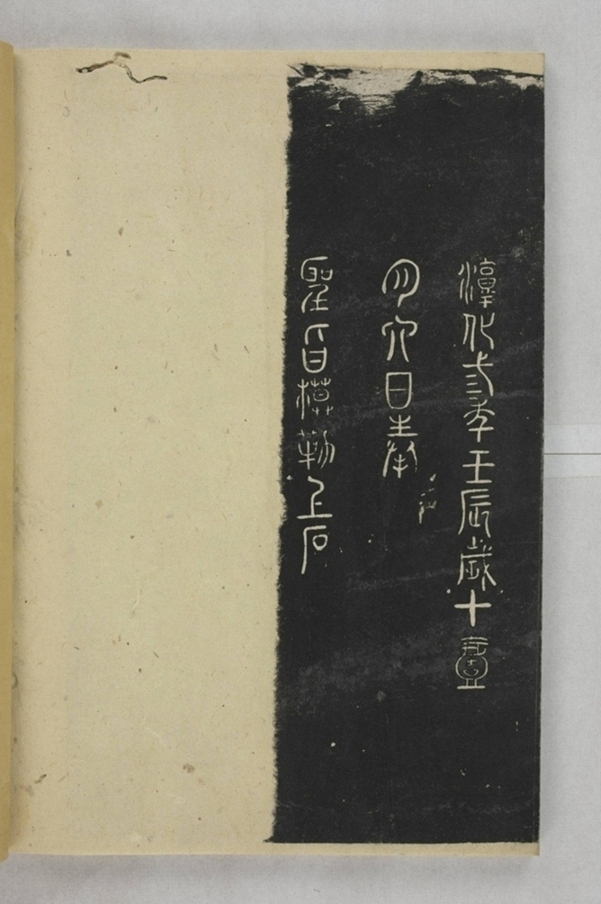 淳化三年壬辰歲十壹
月六日奉
聖旨模勒上石